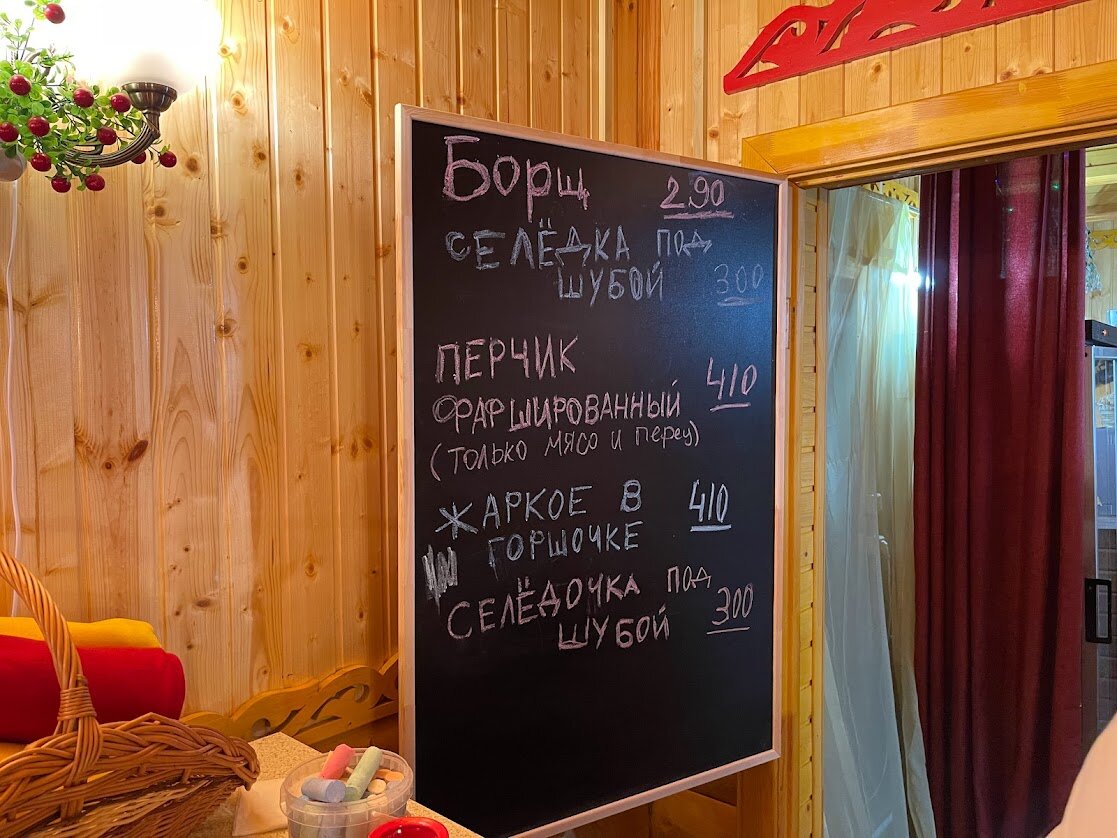 Борщ 290
СЕЛЁДКА ПОД
ШУБОЙ 300
ПЕРЧИК
ФАРШИРОВАННЫЙ 410
(только мясо и перец)
ЖАРКОЕ В 410
ГОРШОЧКЕ
СЕЛЁДОЧКА ПОД
ШУБОЙ 300